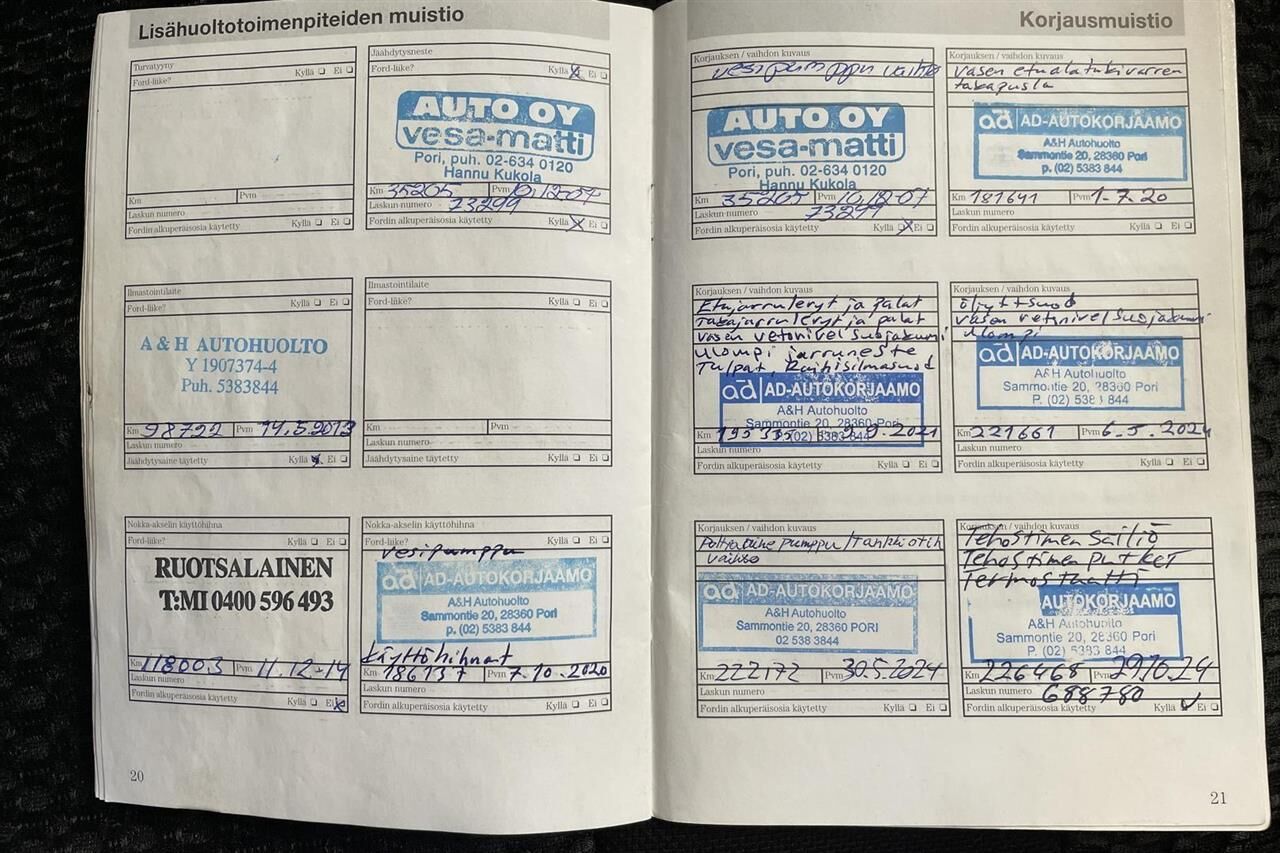 Lisähuoltotoimenpiteiden muistio
Turvatyyny
Ford-liike? Kyllä Ei
Km Pvm
Laskun numero
Fordin alkuperäisosia käytetty Kyllä Ei
Jäähdytysneste
Ford-liike? Kyllä Ei
AUTO OY
vesa-matti
Pori, puh. 02-634 0120
Hannu Kukola
Km 35205 Pvm 10.12-07
Laskun numero 73299
Fordin alkuperäisosia käytetty Kyllä Ei
Ilmastointilaite
Ford-liike? Kyllä Ei
A & H AUTOHUOLTO
Y 1907374-4
Puh. 5383844
Km 98792 Pvm 14.5.2013
Laskun numero
Jäähdytysaine täytetty Kyllä Ei
Ilmastointilaite
Ford-liike? Kyllä Ei
Km Pvm
Laskun numero
Jäähdytysaine täytetty Kyllä Ei
Nokka-akselin käyttöhihna
Ford-liike? Kyllä Ei
RUOTSALAINEN
T:MI 0400 596 493
Km 118003 Pvm 11.12-14
Laskun numero
Fordin alkuperäisosia käytetty Kyllä Ei
Nokka-akselin käyttöhihna
Ford-liike? Kyllä Ei
vesipumppu
ad AD-AUTOKORJAAMO
A&H Autohuolto
Sammontie 20, 28360 Pori
p. (02) 5383 844
käyttöhihnat
Km 186737 Pvm 7.10.2020
Laskun numero
Fordin alkuperäisosia käytetty Kyllä Ei
20
Korjausmuistio
Korjauksen / vaihdon kuvaus
vesipumppu vaihto
AUTO OY
vesa-matti
Pori, puh. 02-634 0120
Hannu Kukola
Km 35205 Pvm 10.12-07
Laskun numero 73299
Fordin alkuperäisosia käytetty Kyllä Ei
Korjauksen / vaihdon kuvaus
vasen etualatukivarren
takapusla
ad AD-AUTOKORJAAMO
A&H Autohuolto
Sammontie 20, 28360 Pori
p. (02) 5383 844
Km 181641 Pvm 1.7.20
Laskun numero
Fordin alkuperäisosia käytetty Kyllä Ei
Korjauksen / vaihdon kuvaus
Etujarrulevyt ja palat
takajarrulevyt ja palat
vasen vetonivel suojakumi
ulompi jarruneste
Tulpat, Raitisilmasuod
ad AD-AUTOKORJAAMO
A&H Autohuolto
Sammontie 20, 28360 Pori
P. (02) 5383 844
Km 195335 2021
Laskun numero
Fordin alkuperäisosia käytetty Kyllä Ei
Korjauksen / vaihdon kuvaus
öljyt+suod
vasen vetonivel suojakumi
ulompi
ad AD-AUTOKORJAAMO
A&H Autohuolto
Sammontie 20, 28360 Pori
P. (02) 5383 844
Km 221661 Pvm 6.5.2024
Laskun numero
Fordin alkuperäisosia käytetty Kyllä Ei
Korjauksen / vaihdon kuvaus
Polttoaine pumppu/tankki
vaihto
ad AD-AUTOKORJAAMO
A&H Autohuolto
Sammontie 20, 28360 PORI
02 538 3844
Km 222172 Pvm 30.5.2024
Laskun numero
Fordin alkuperäisosia käytetty Kyllä Ei
Korjauksen / vaihdon kuvaus
Tehostimen säiliö
Tehostimen putket
Termostaatti
AUTOKORJAAMO
A&H Autohuolto
Sammontie 20, 28360 Pori
P. (02) 5383 844
Km 226468 Pvm 29.10.24
Laskun numero 688780
Fordin alkuperäisosia käytetty Kyllä Ei
21